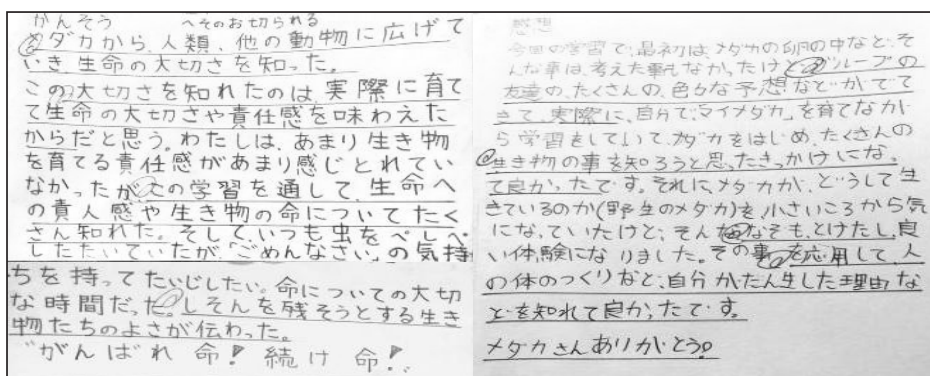 かんそう
へそのお切られる
メダカから、人類、他の動物に広げて
いき、生命の大切さを知った。
この大切さを知れたのは、実際に育て
て生命の大切さや責任感を味わえた
からだと思う。わたしは、あまり生き物
を育てる責任感があまり感じとれてい
なかったが、この学習を通して、生命へ
の責人感や生き物の命についてたく
さん知れた。そして、いつも虫をぺしぺ
ししたたいていたが、「ごめんなさい」の気持
ちを持ってたいじしたい。命についての大切
な時間だった。しそんを残そうとする生き
物たちのよさが伝わった。
"がんばれ 命! 続け 命!
感想
今回の学習で、最初は、メダカの卵の中など、そ
んな事は、考えた事もなかったけど、グループの
友達の、たくさんの、色々な予想などがでて
きて、実際に、自分で、マイメダカ、を育てなが
ら学習をしていて、メダカをはじめ、たくさんの
生き物の事を知ろうと思ったきっかけにな
って良かったです。それに、メダカが、どうして生
きているのか(野生のメダカ)を、小さいころから気
になっていたけど、そんななぞも、とけたし、良
い体験になりました。その事を応用して、人
の体のつくりなど、自分がたん生した理由な
どを知れて良かったです。
メダカさんありがとう。